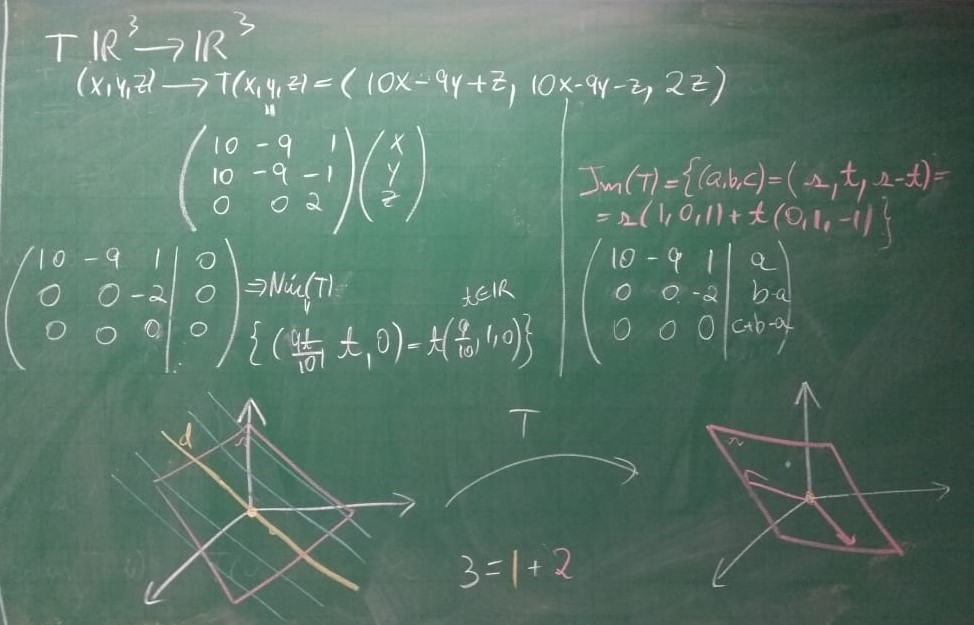 T ℝ³→ℝ³
(x,y,z)→T(x,y,z)=(10x-9y+z, 10x-9y-z, 2z)
(10 -9 1) (x)
(10 -9 -1) (y)
(0 0 2) (z)
Im(T)={(a,b,c)=(s,t,s-t)=
=s(1,0,1)+t(0,1,-1)}
(10 -9 1 | 0)
(0 0 -2 | 0) ⇒Nuc(T)
(0 0 0 | 0)
t∈ℝ
{(9t/10, t,0)=t(9/10,1,0)}
(10 -9 1 | a)
(0 0 -2 | b-a)
(0 0 0 | c+b-a)
d
T
π
π
3=1+2